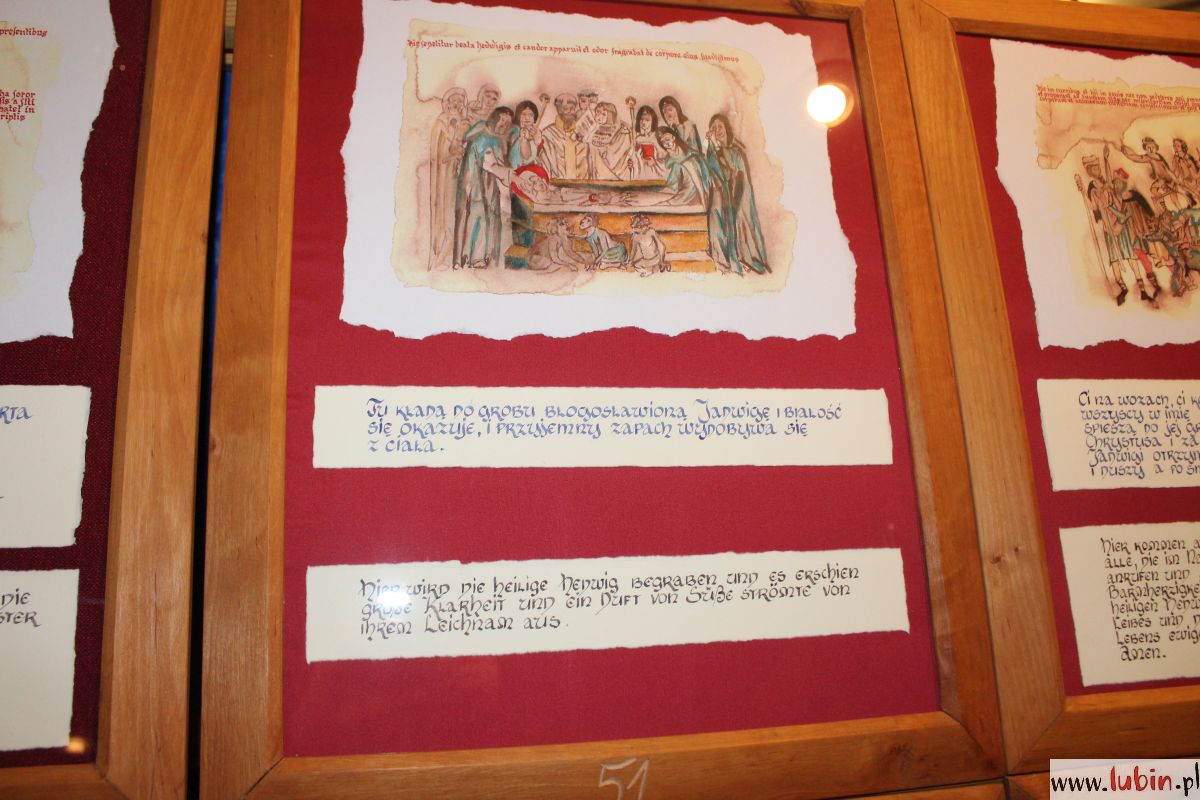 presentibus
ha soror
sis a siti
in
riptis
RTA
DIE
STER
Hic sepelitur beata hedwigis et candor apparuit et odor fragrabat de corpore eius, suavissimus
Tu kładą do grobu błogosławioną Jadwigę i białość
się okazuje, i przyjemny zapach wydobywa się
z ciała.
Hier wird die heilige Hedwig begraben und es erschien
große Klarheit und ein Duft von Süße strömte von
ihrem Leichnam aus.
51
Ci na wozach, ci k
wszyscy w imię
śpieszą do jej gr
Chrystusa i za
Jadwigi otrzym
i duszy a po śm
Hier kommen a
alle, die in No
anrufen und
Barmherzigke
heiligen Hedw
Leibes und d
Lebens ewig
Amen.
www.lubin.pl